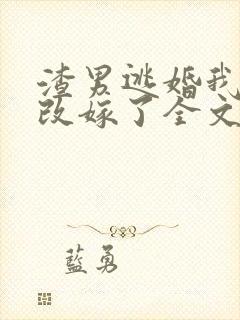 渣男逃婚我
改嫁了全文
藍勇